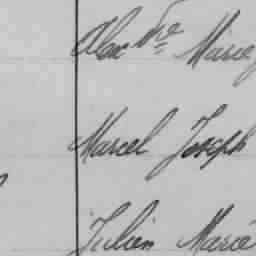 Alex dre Marie
Marcel Joseph
Julien Marie